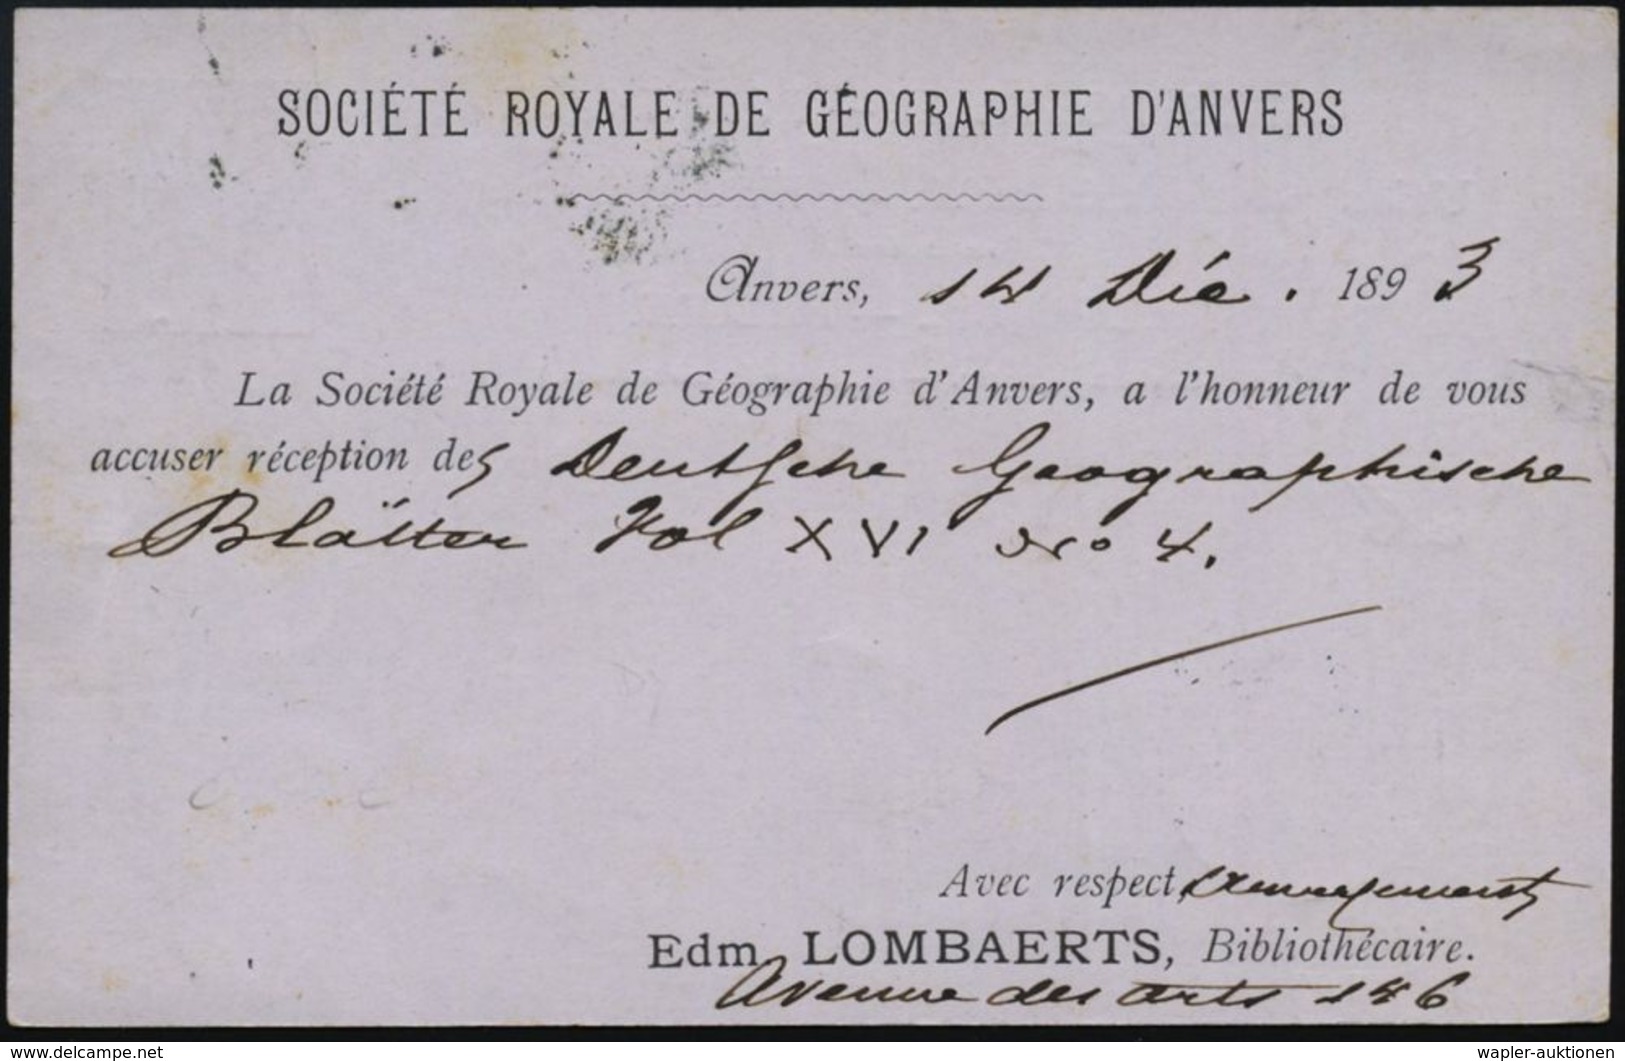 SOCIÉTÉ ROYALE DE GÉOGRAPHIE D'ANVERS
Anvers, 14 Déc. 1893
La Société Royale de Géographie d'Anvers, a l'honneur de vous
accuser réception des Deutsche Geographische
Blätter Vol XVI No 4.
Avec respect,
Edm. LOMBAERTS, Bibliothécaire.
Avenue des arts 146
delcampe.net
wapler-auktionen